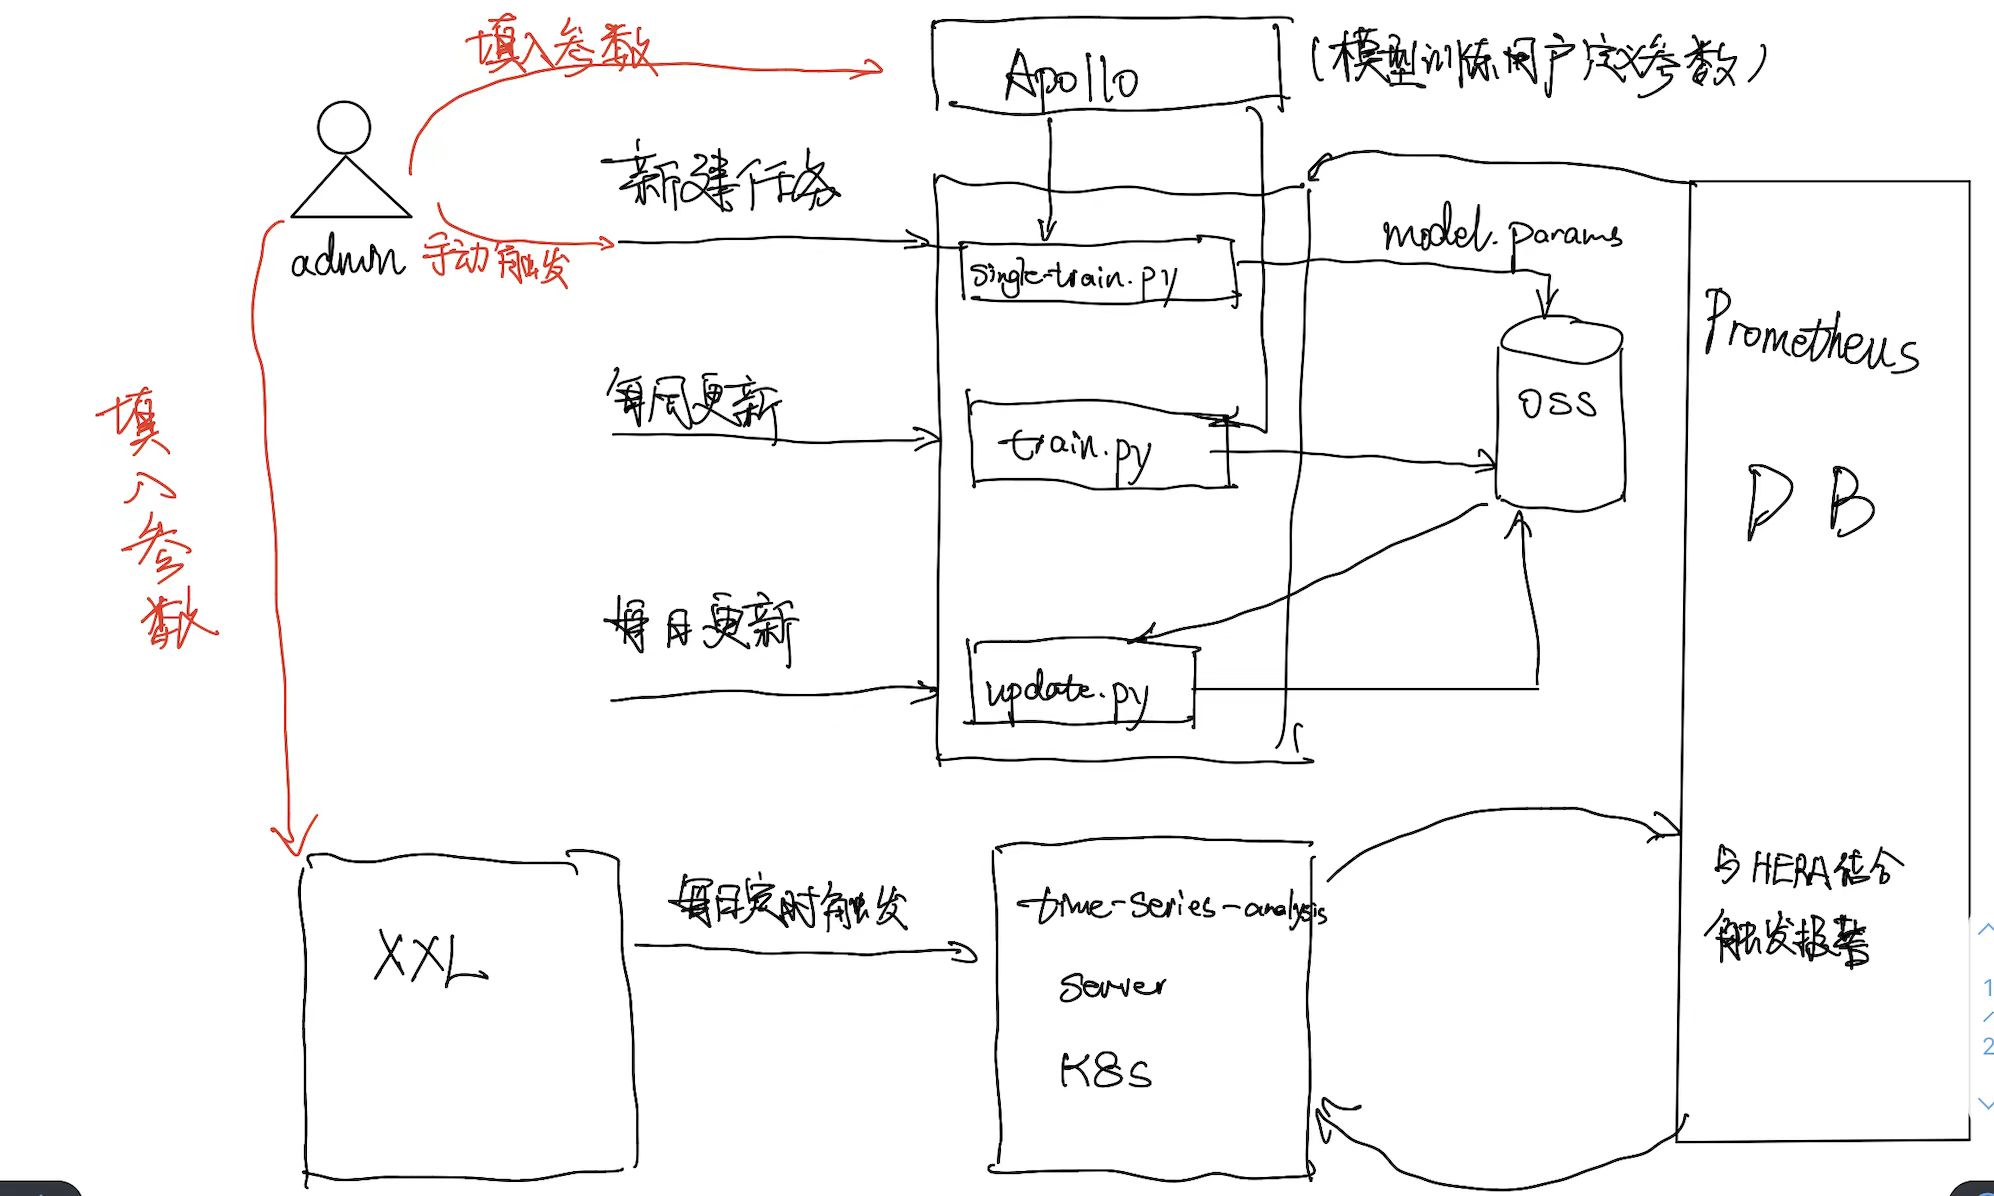 填入参数
Apollo
(模型训练用户定义参数)
新建任务
admin
手动触发
single-train.py
model.params
Prometheus
DB
OSS
每周更新
train.py
填入参数
每日更新
update.py
XXL
每日定时触发
time-series-analysis
server
K8S
与HERA结合
触发报警
1
/
2